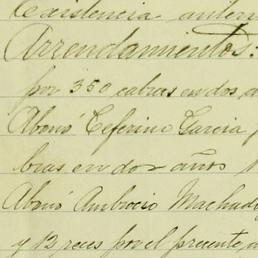 Existencia anteri
Arrendamientos:
por 350 cabras en dos a
Abonó Ceferino Garcia p
bras en dos años
Abonó Ambrocio Machad
y 12 reces por el presente a